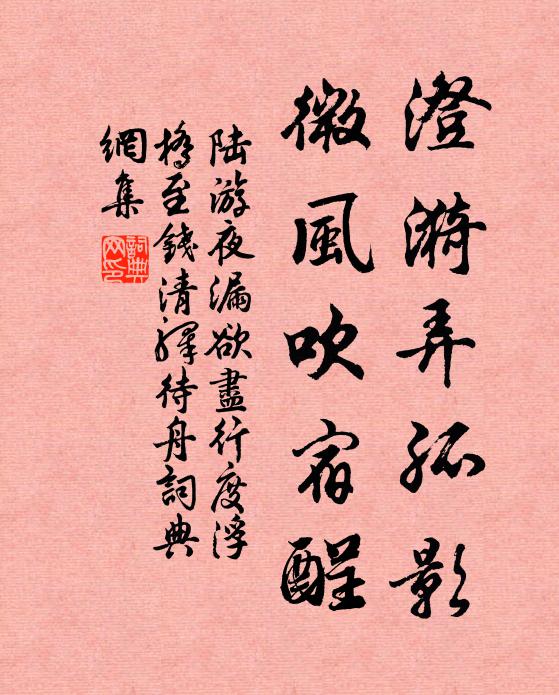 澄漪弄孤影
微風吹宿醒
陆游夜漏欲盡行度浮
橋至錢清驛待舟詞典
網集
詞典網印